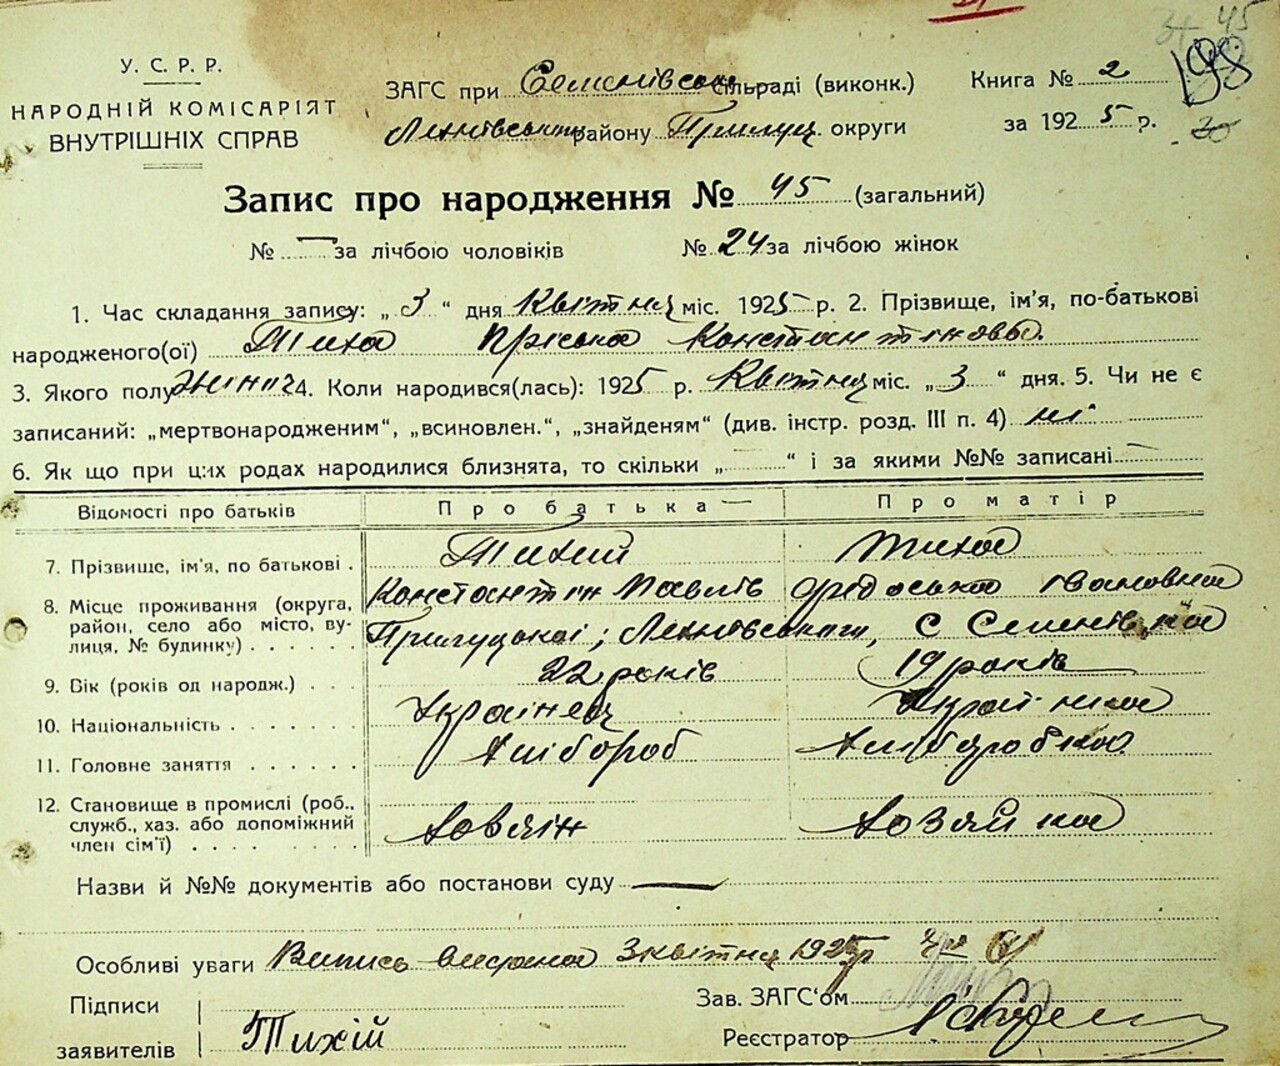 45
У. С. Р. Р.
НАРОДНІЙ КОМІСАРІЯТ
ВНУТРІШНІХ СПРАВ
ЗАГС при Семенівськ сільраді (виконк.)
району Прилуц. округи
Книга № 2
за 1925 р.
198
Запис про народження № 45 (загальний)
№ — за лічбою чоловіків № 24 за лічбою жінок
1. Час складання запису: „ 3 “ дня Квітня міс. 1925 р. 2. Прізвище, ім’я, по-батькові
народженого(ої) Тиха Пріська Константіновна
3. Якого полу жіноч 4. Коли народився(лась): 1925 р. Квітня міс. „ 3 “ дня. 5. Чи не є
записаний: „мертвонародженим“, „всиновлен.“, „знайденям“ (див. інстр. розд. III п. 4) ні
6. Як що при цих родах народилися близнята, то скільки „ — “ і за якими №№ записані —
Відомості про батьків Про батька — Про матір
7. Прізвище, ім’я, по батькові . Тихий Тиха
Константін Павлів Федоська Івановна
8. Місце проживання (округа, район, село або місто, вулиця, № будинку) . . . . . . Прилуцької; с Семенівка
9. Вік (років од народж.) . . . 22 років 19 років
10. Національність . . . . . . . Українец Українка
11. Головне заняття . . . . . . Хлібороб Хліборобка
12. Становище в промислі (роб.,
служб., хаз. або допоміжний
член сім’ї) . . . . . . . . . Хозяїн Хозяйка
Назви й №№ документів або постанови суду —
Особливі уваги Випись видана 3 квітня 1925 р
Підписи
заявителів Тихій
Зав. ЗАГС‘ом
Реєстратор